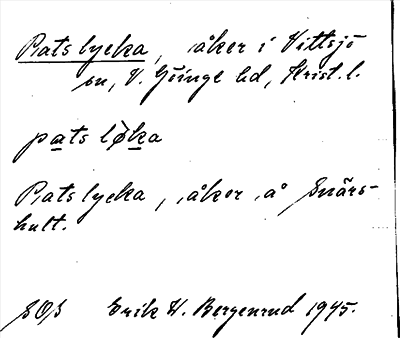 Patslycka, åker i Vittsjö
sn, V. Göinge hd, Krist. l.
pats lø̀ka
Patslycka, åker å Snärs-
hult.
SOS Erik H. Bergenrud 1945.